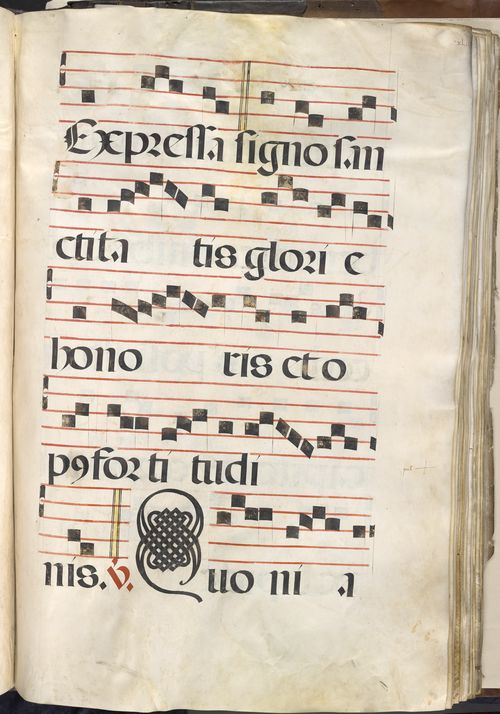 Expressa signo san
ctita tis glori e
hono ris cto
p9 forti tudi
nis. v. Quo ni a